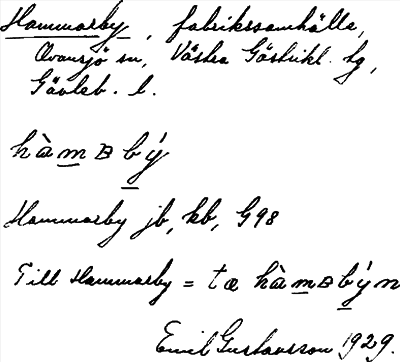 Hammarby, fabrikssamhälle,
Ovansjö sn, Västra Gästrikl. tg,
Gävleb. l.
hàmɒbý
Hammarby jb, kb, G98
Till Hammarby = tœ hàmɒbýn
Emil Gustavsson 1929.